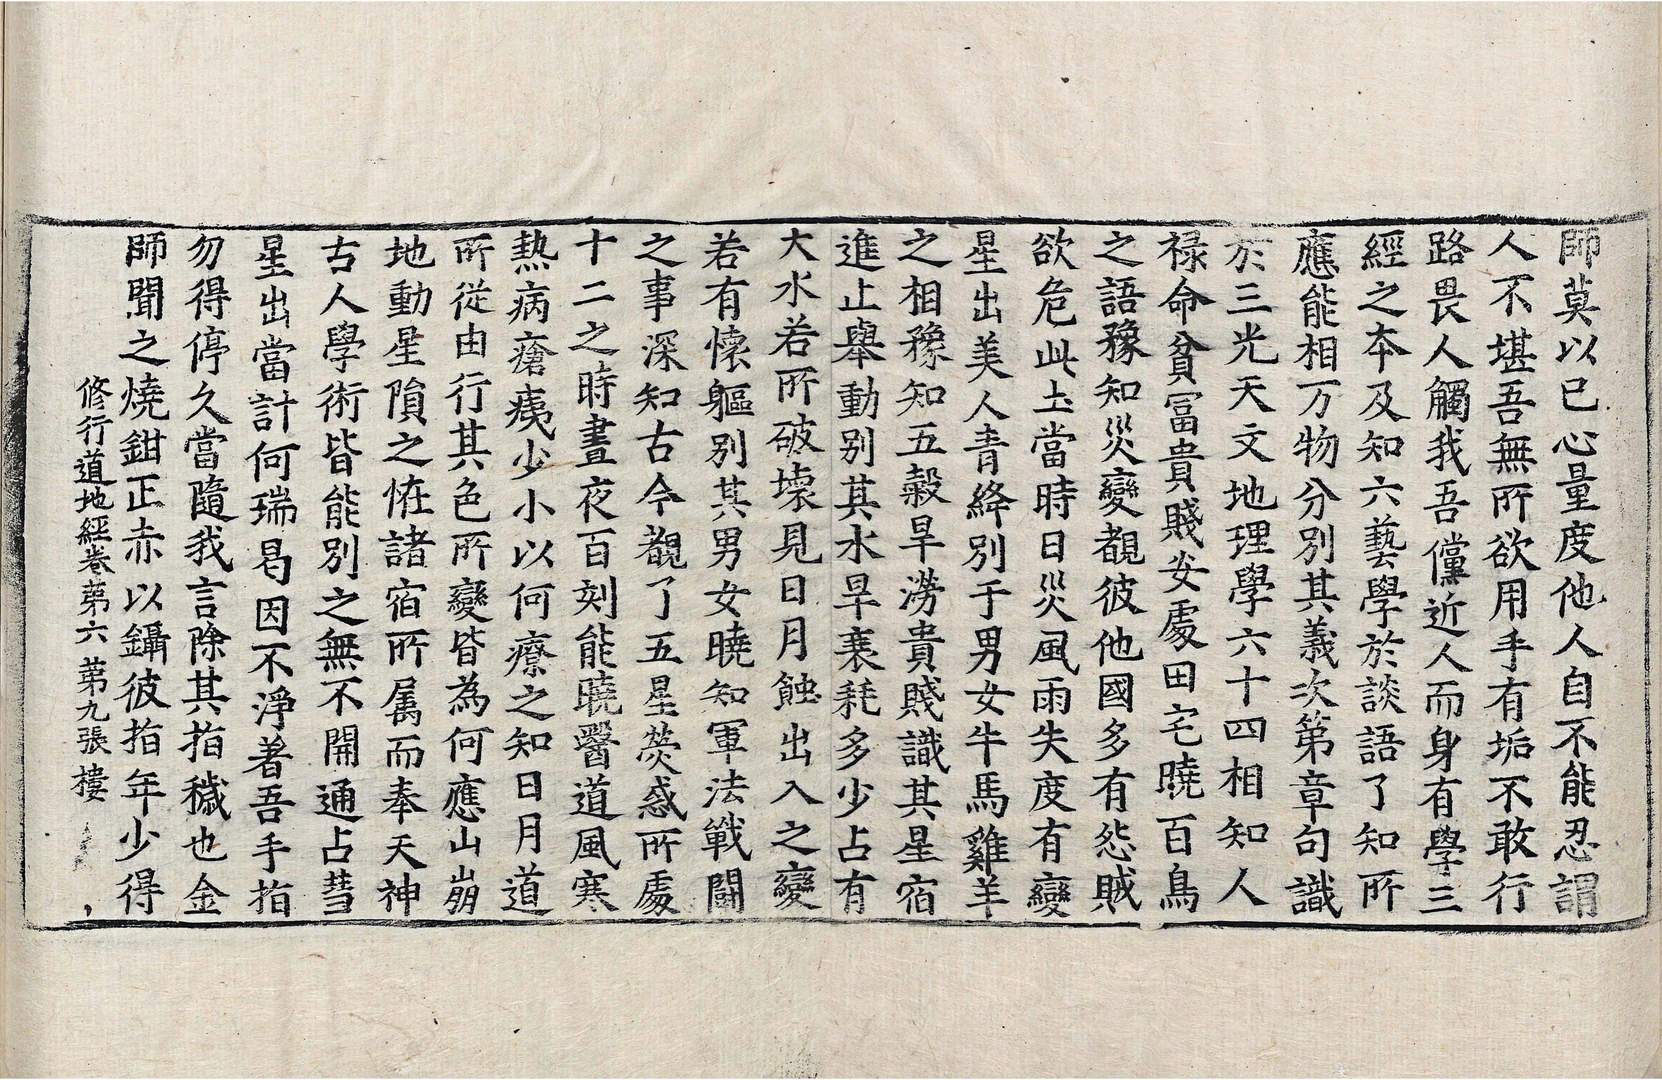 師莫以已心量度他人自不能忍謂
人不堪吾無所欲用手有垢不敢行
路畏人觸我吾儻近人而身有學三
經之本及知六藝學於談語了知所
應能相万物分別其義次第章句識
於三光天文地理學六十四相知人
禄命貧冨貴賤安處田宅曉百鳥
之語豫知災變覩彼他國多有怨賊
欲危此土當時日災風雨失度有變
星出美人青絳別于男女牛馬雞羊
之相豫知五穀旱澇貴賤識其星宿
進止舉動別其水旱衰耗多少占有
大水若所破壞見日月蝕出入之變
若有懷軀別其男女曉知軍法戰鬪
之事深知古今覩了五星熒惑所處
十二之時晝夜百刻能曉醫道風寒
熱病瘡痍少小以何療之知日月道
所從由行其色所變皆為何應山崩
地動星隕之恠諸宿所属而奉天神
古人學術皆能別之無不開通占彗
星出當計何瑞曷因不淨著吾手指
勿得停久當隨我言除其指穢也金
師聞之燒鉗正赤以鑷彼指年少得
修行道地經卷第六 第九張 樓